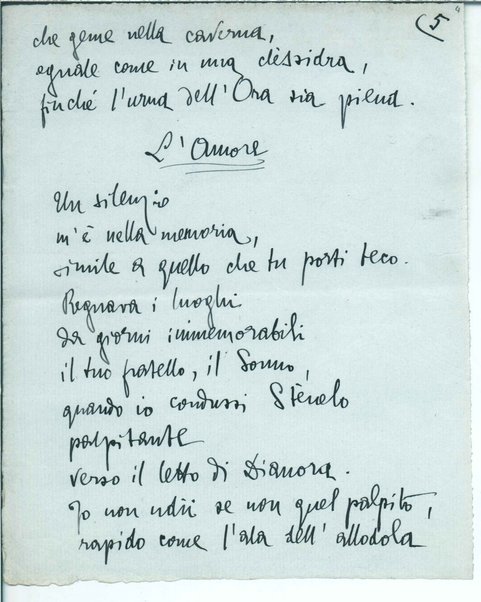 (5
che geme nella caverna,
eguale come in una clèssidra,
finché l'urna dell'Ora sia piena.
L'Amore
Un silenzio
m'è nella memoria,
simile a quello che tu porti teco.
Regnava i luoghi
da giorni immemorabili
il tuo fratello, il Sonno,
quando io condussi Stènelo
palpitante
verso il letto di Dianora.
Io non udii se non quel palpito,
rapido come l'ala dell'allodola